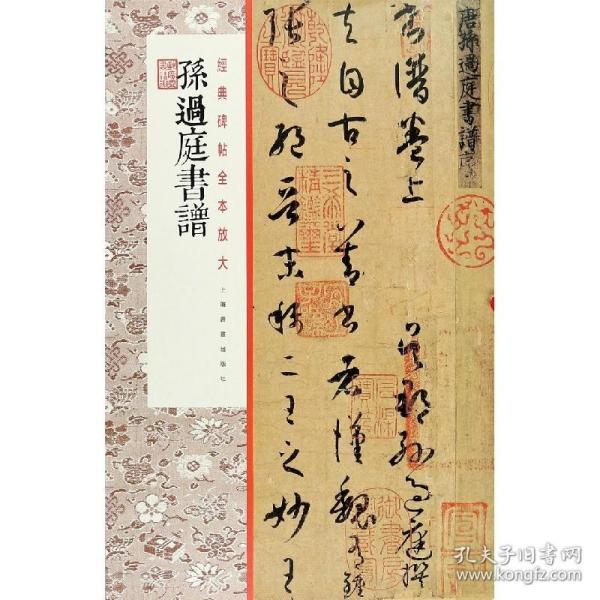 經典碑帖全本放大
上海書畫出版社
孫過庭書譜
唐孫過庭書譜
書譜卷上 吳郡孫過庭撰
夫自古之善書者漢魏有鍾
張之絕晉末稱二王之妙王
孔夫子旧书网
www.kongfz.com